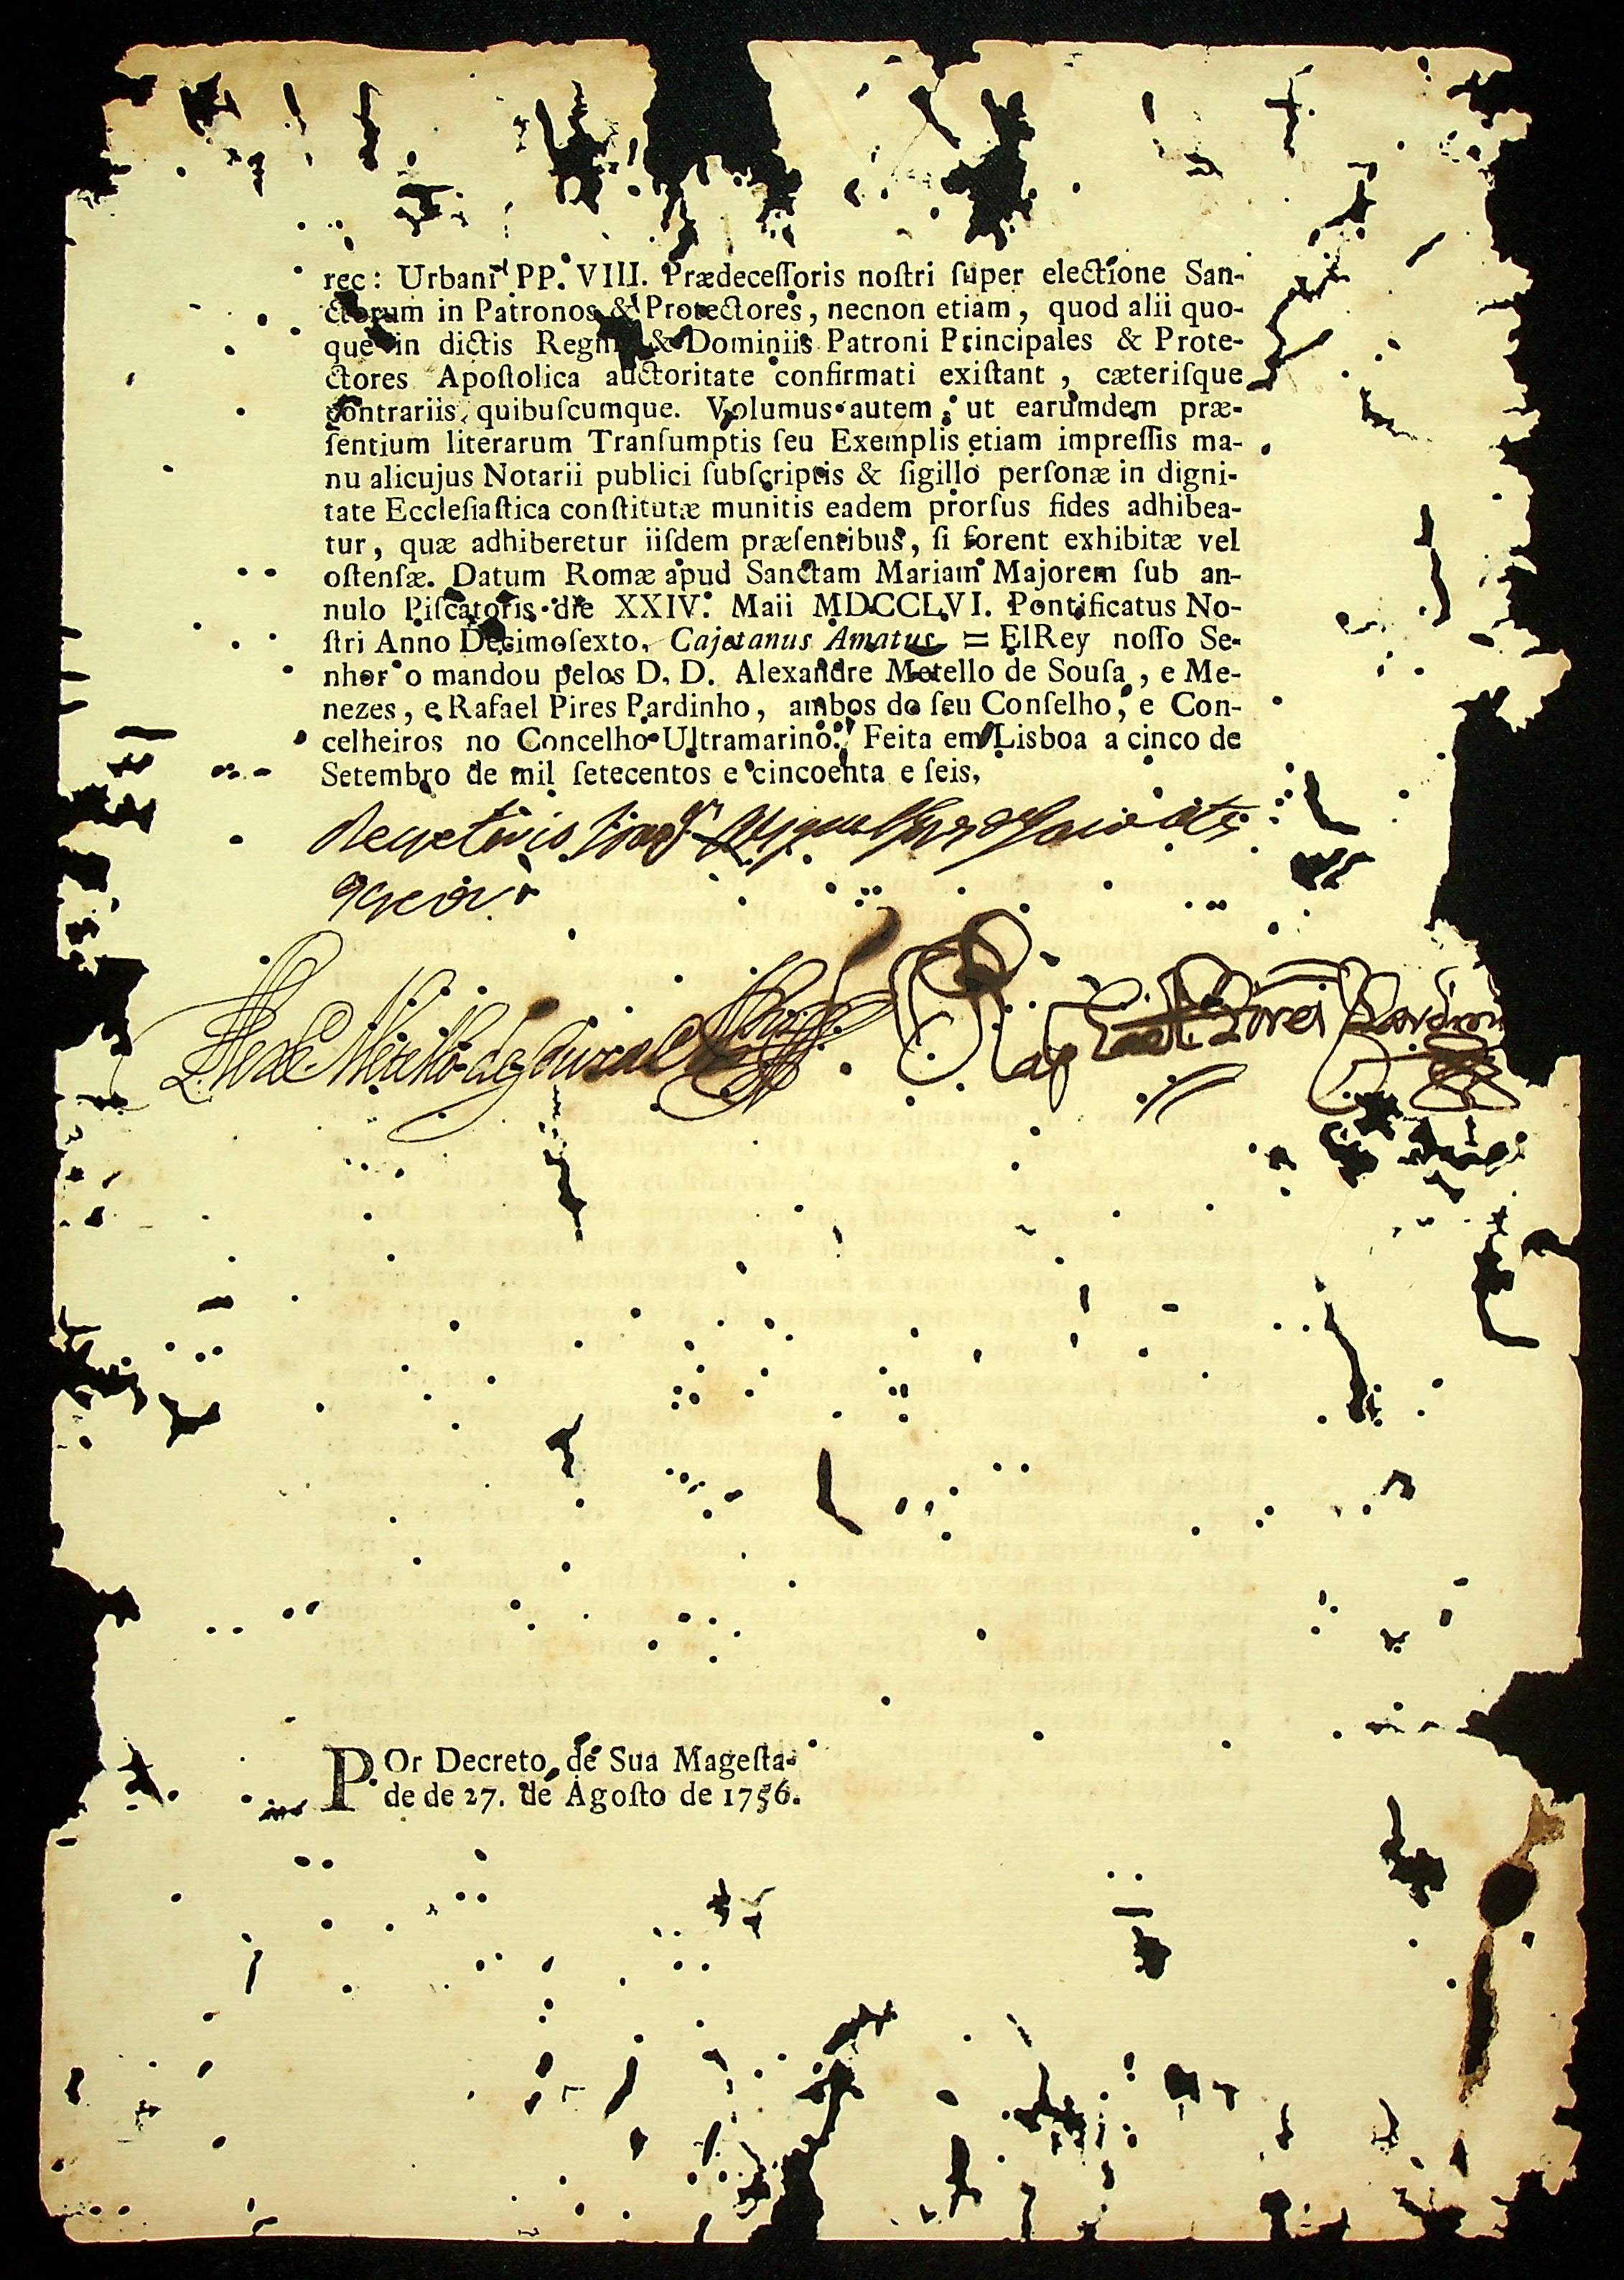 rec: Urbani PP. VIII. Prædeceſſoris noſtri ſuper electione San-
ctorum in Patronos & Protectores, necnon etiam, quod alii quo-
que in dictis Regnis & Dominiis Patroni Principales & Prote-
ctores Apoſtolica auctoritate confirmati exiſtant, cæteriſque
contrariis quibuſcumque. Volumus autem, ut earumdem præ-
ſentium literarum Tranſumptis ſeu Exemplis etiam impreſſis ma-
nu alicujus Notarii publici ſubſcriptis & ſigillo perſonæ in digni-
tate Eccleſiaſtica conſtitutæ munitis eadem prorſus fides adhibea-
tur, quæ adhiberetur iiſdem præſentibus, ſi forent exhibitæ vel
oſtenſæ. Datum Romæ apud Sanctam Mariam Majorem ſub an-
nulo Piſcatoris die XXIV. Maii MDCCLVI. Pontificatus No-
ſtri Anno Decimoſexto. Cajetanus Amatus = ElRey noſſo Se-
nhor o mandou pelos D. D. Alexandre Metello de Souſa, e Me-
nezes, e Rafael Pires Pardinho, ambos do ſeu Conſelho, e Con-
celheiros no Concelho Ultramarino. Feita em Lisboa a cinco de
Setembro de mil ſetecentos e cincoenta e ſeis.
Alex.e Metello de Souza e
Rafael Pires Pardinho
POr Decreto de Sua Mageſta-
de de 27. de Agoſto de 1756.